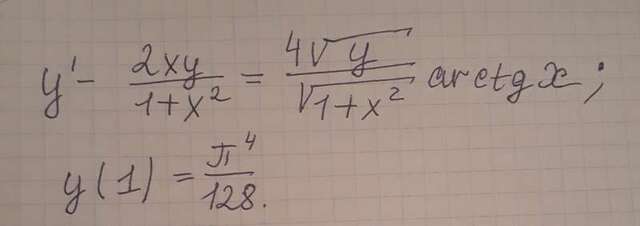 y' - 2xy/(1+x²) = 4√y/√(1+x²) arctg x;
y(1) = π⁴/128.